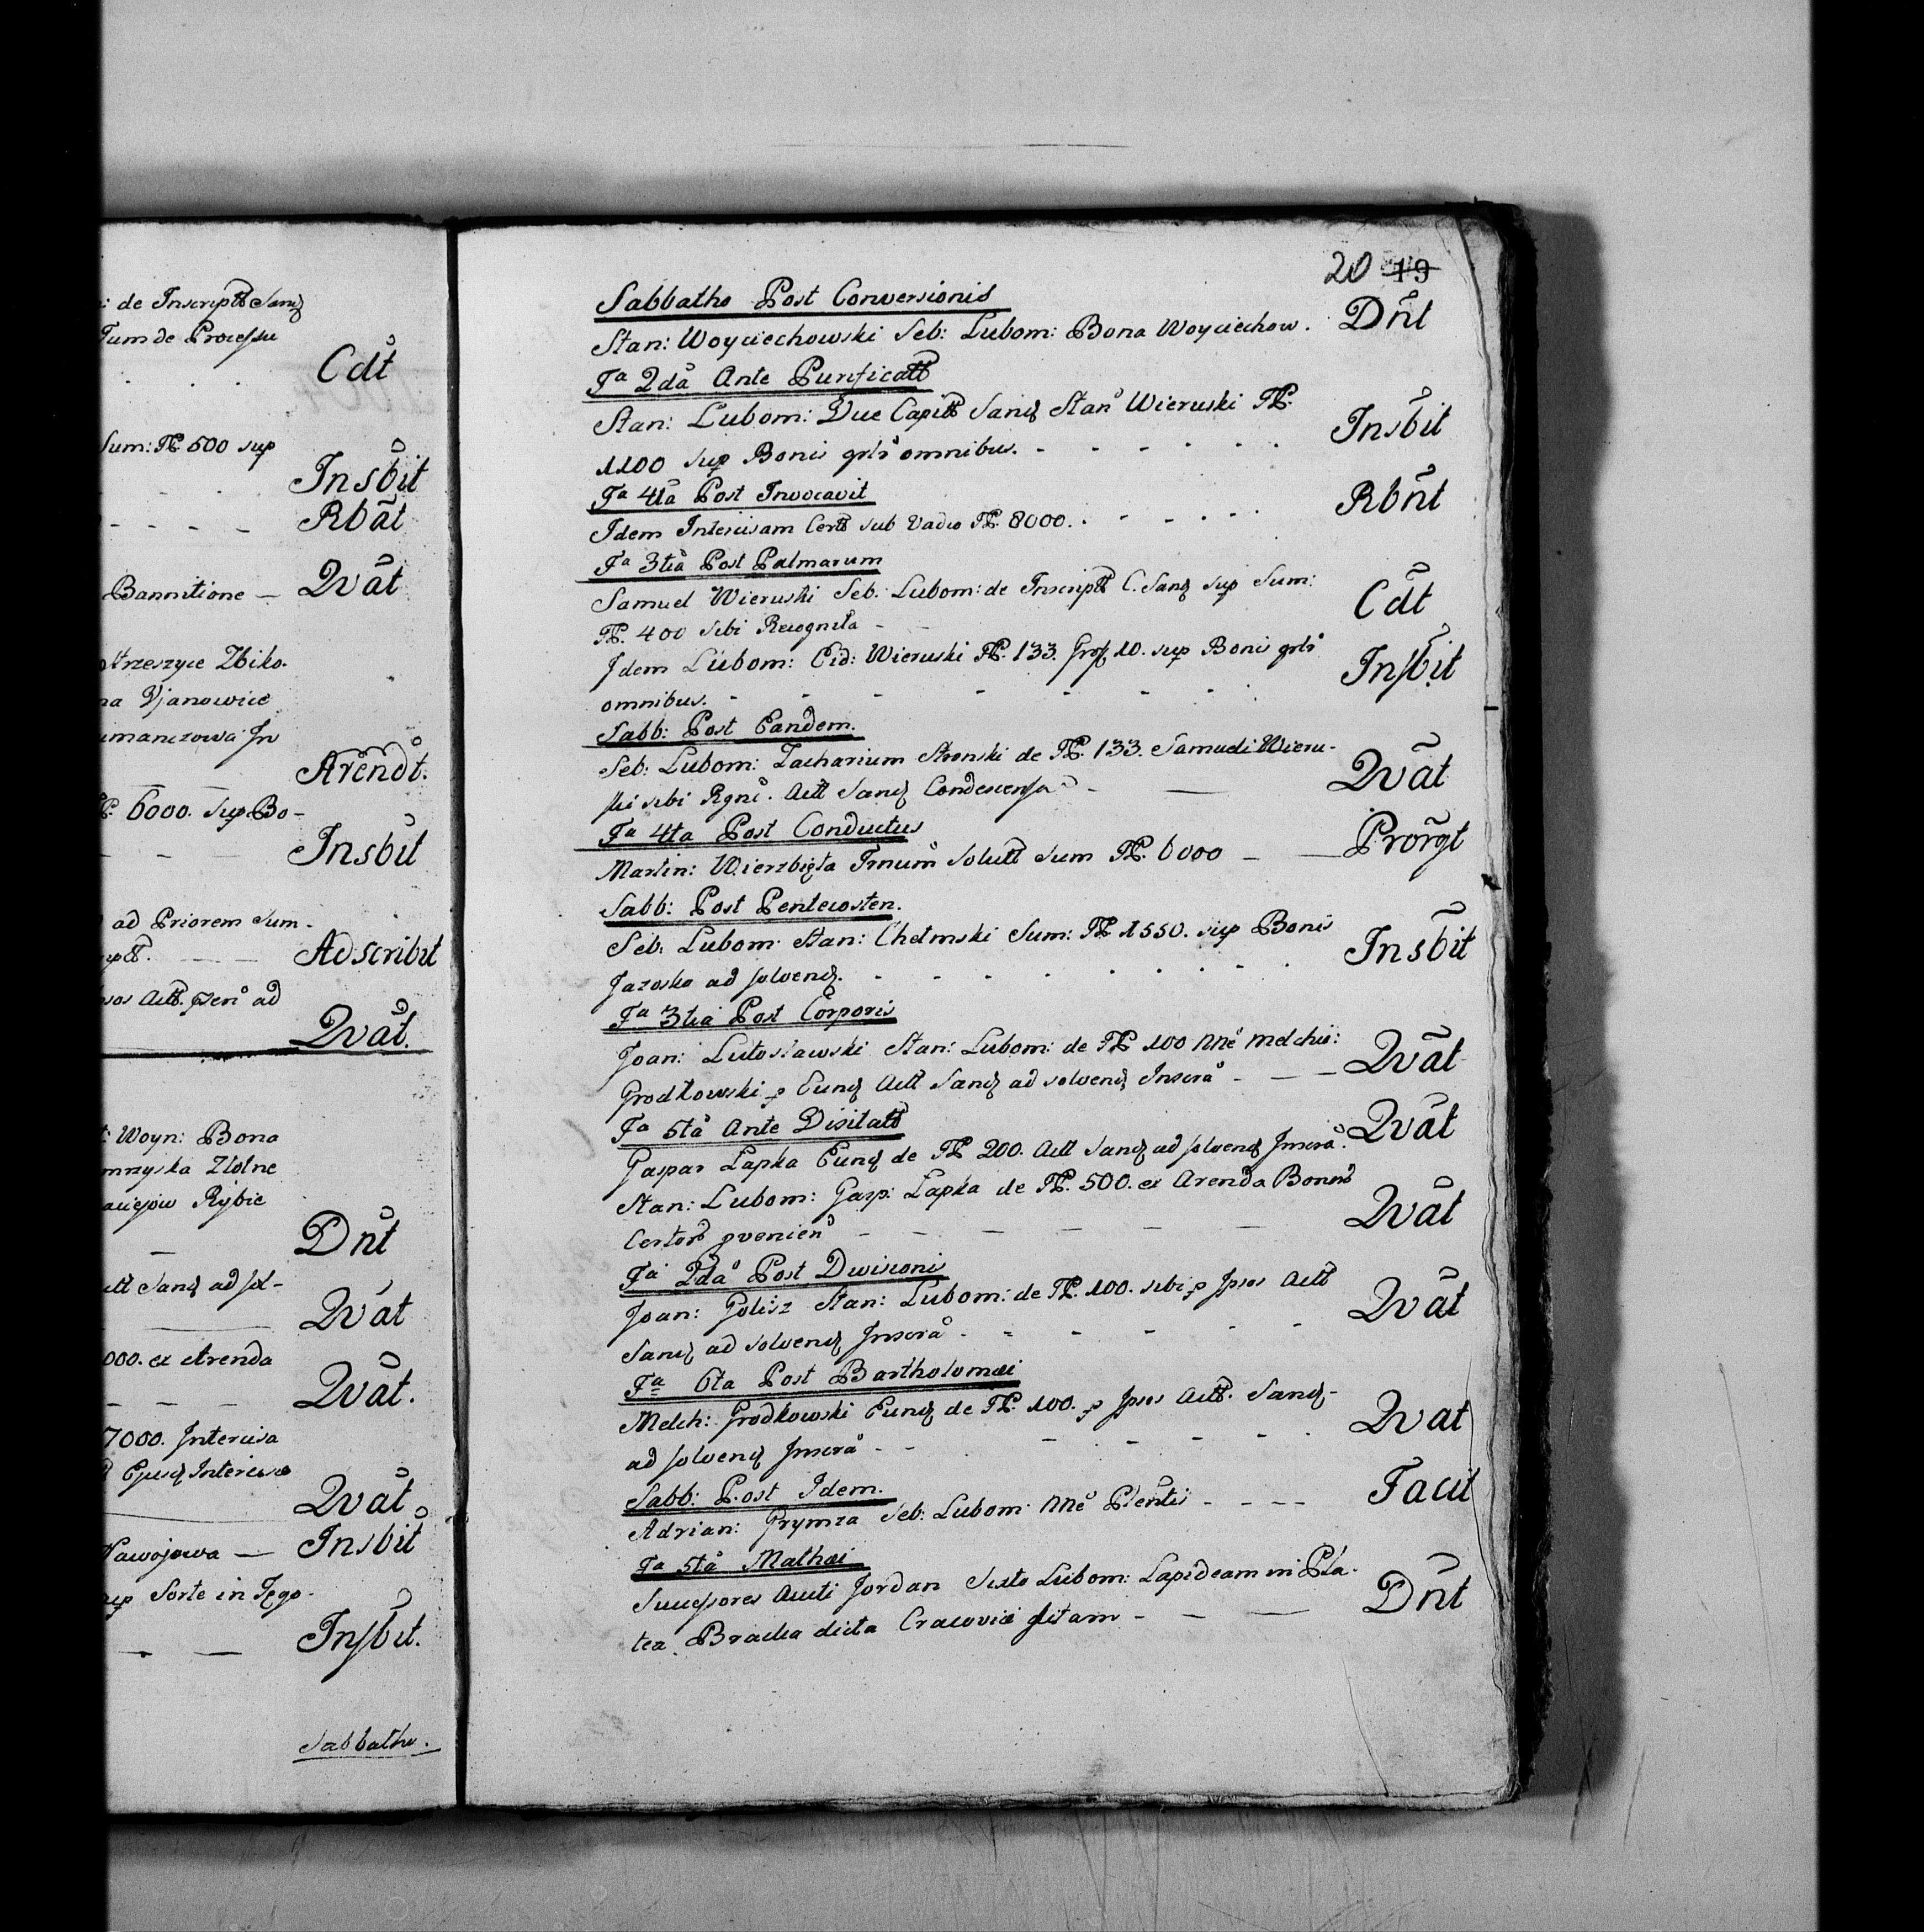 : de Inscriptt Sand
Tum de Processu
Cdt
Sum: fl. 500 sup
Insbit
Rbãt
Bannitione — Qvãt
trzeszyce Zbiko.
na Vjanowice
manczowa In
Arendt.
6000. sup Bo-
Insbit
ad Priorem Sum.
Adscribit
Actt. ad
Qvãt.
: Woyn: Bona
mnyska Zlotne
Rybie
Dnt
Actt Sand ad sol-
Qvat
000. ex Arenda
Qvat.
7000. Intercisa
Ejusd Intercisa
Qvat
Nawojowa — Insbit
sup Sorte in Tego-
Insbit.
Sabbatho.
20 19
Sabbatho Post Conversionis
Stan: Woyciechowski Seb: Lubom: Bona Woyciechow. Dñt
Fa 2da Ante Purificatt
Stan: Lubom: Due Capitt Sand Stan Wieruski fl.
1100 sup Bonis grlr omnibus. - Insbit
Fa 4ta Post Invocavit
Idem Intercisam Certt sub Vadio fl. 8000. Rbñt
Fa 3tia Post Palmarum
Samuel Wieruski Seb: Lubom: de Inscriptt C. Sand sup Sum:
fl. 400 sibi Recognita - Cdt
Idem Lubom: Eid: Wieruski fl. 133. Gros 10. sup Bonis grlr
omnibus. - Insbit
Sabb: Post Eandem.
Seb: Lubom: Zacharium Stronski de fl. 133. Samueli Wieru-
ski sibi Rgni. Actt Sand Condescensa - Qvãt
Fa 4ta Post Conductus
Martin: Wierzbięta Trnum Solutt Sum fl. 6000 — Prorgt
Sabb: Post Pentecosten.
Seb: Lubom: Stan: Chełmski Sum: fl. 1550. sup Bonis
Jazosko ad solvend. - Insbit
Fa 3tia Post Corporis
Joan: Lutosławski Stan: Lubom: de fl. 100 nne Melchio:
Grodkowski p Eund Actt Sand ad solvend Inscra - Qvãt
Fa 5ta Ante Visitatt
Gaspar Łapka Eund de fl. 200. Actt Sand ad solvend Inscra. Qvãt
Stan: Lubom: Gasp: Łapka de fl. 500. ex Arenda Bonor
Certor pvenien - Qvãt
Fa 2da Post Divisionis
Joan: Golisz Stan: Lubom: de fl. 100. sibi p Ipsos Actt
Sand ad solvend Inscra - Qvãt
Fa 6ta Post Bartholomæi
Melch: Grodkowski Eund de fl. 100. p Ipsos Actt. Sand-
ad solvend Inscra - Qvat
Sabb: Post Idem.
Adrian: Grymza Seb: Lubom: nne Plentis - Facit
Fa 5ta Mathæi
Successores Aucti Jordan Sixto Lubom: Lapideam in Pla-
tea Bracka dicta Cracoviæ sitam - Dñt